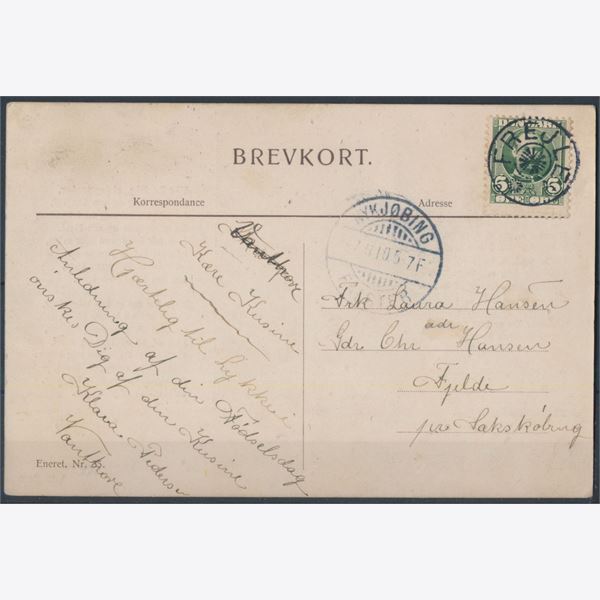 BREVKORT.
Korrespondance
Adresse
DANMARK
5 5
FREJLEV
NYKJØBING
7 F
Vantore
Kære Kusine
Hjærtelig til Lykke i
Anledning af din Fødselsdag
önskes Dig af din Kusine
Klara Pedersen
Vantore
Frk Laura Hansen
adr
Gdr Chr Hansen
Fjelde
pr Sakskóbing
Eneret. Nr.